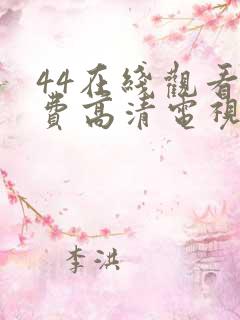 44在綫觀看
費高清電視
李洪